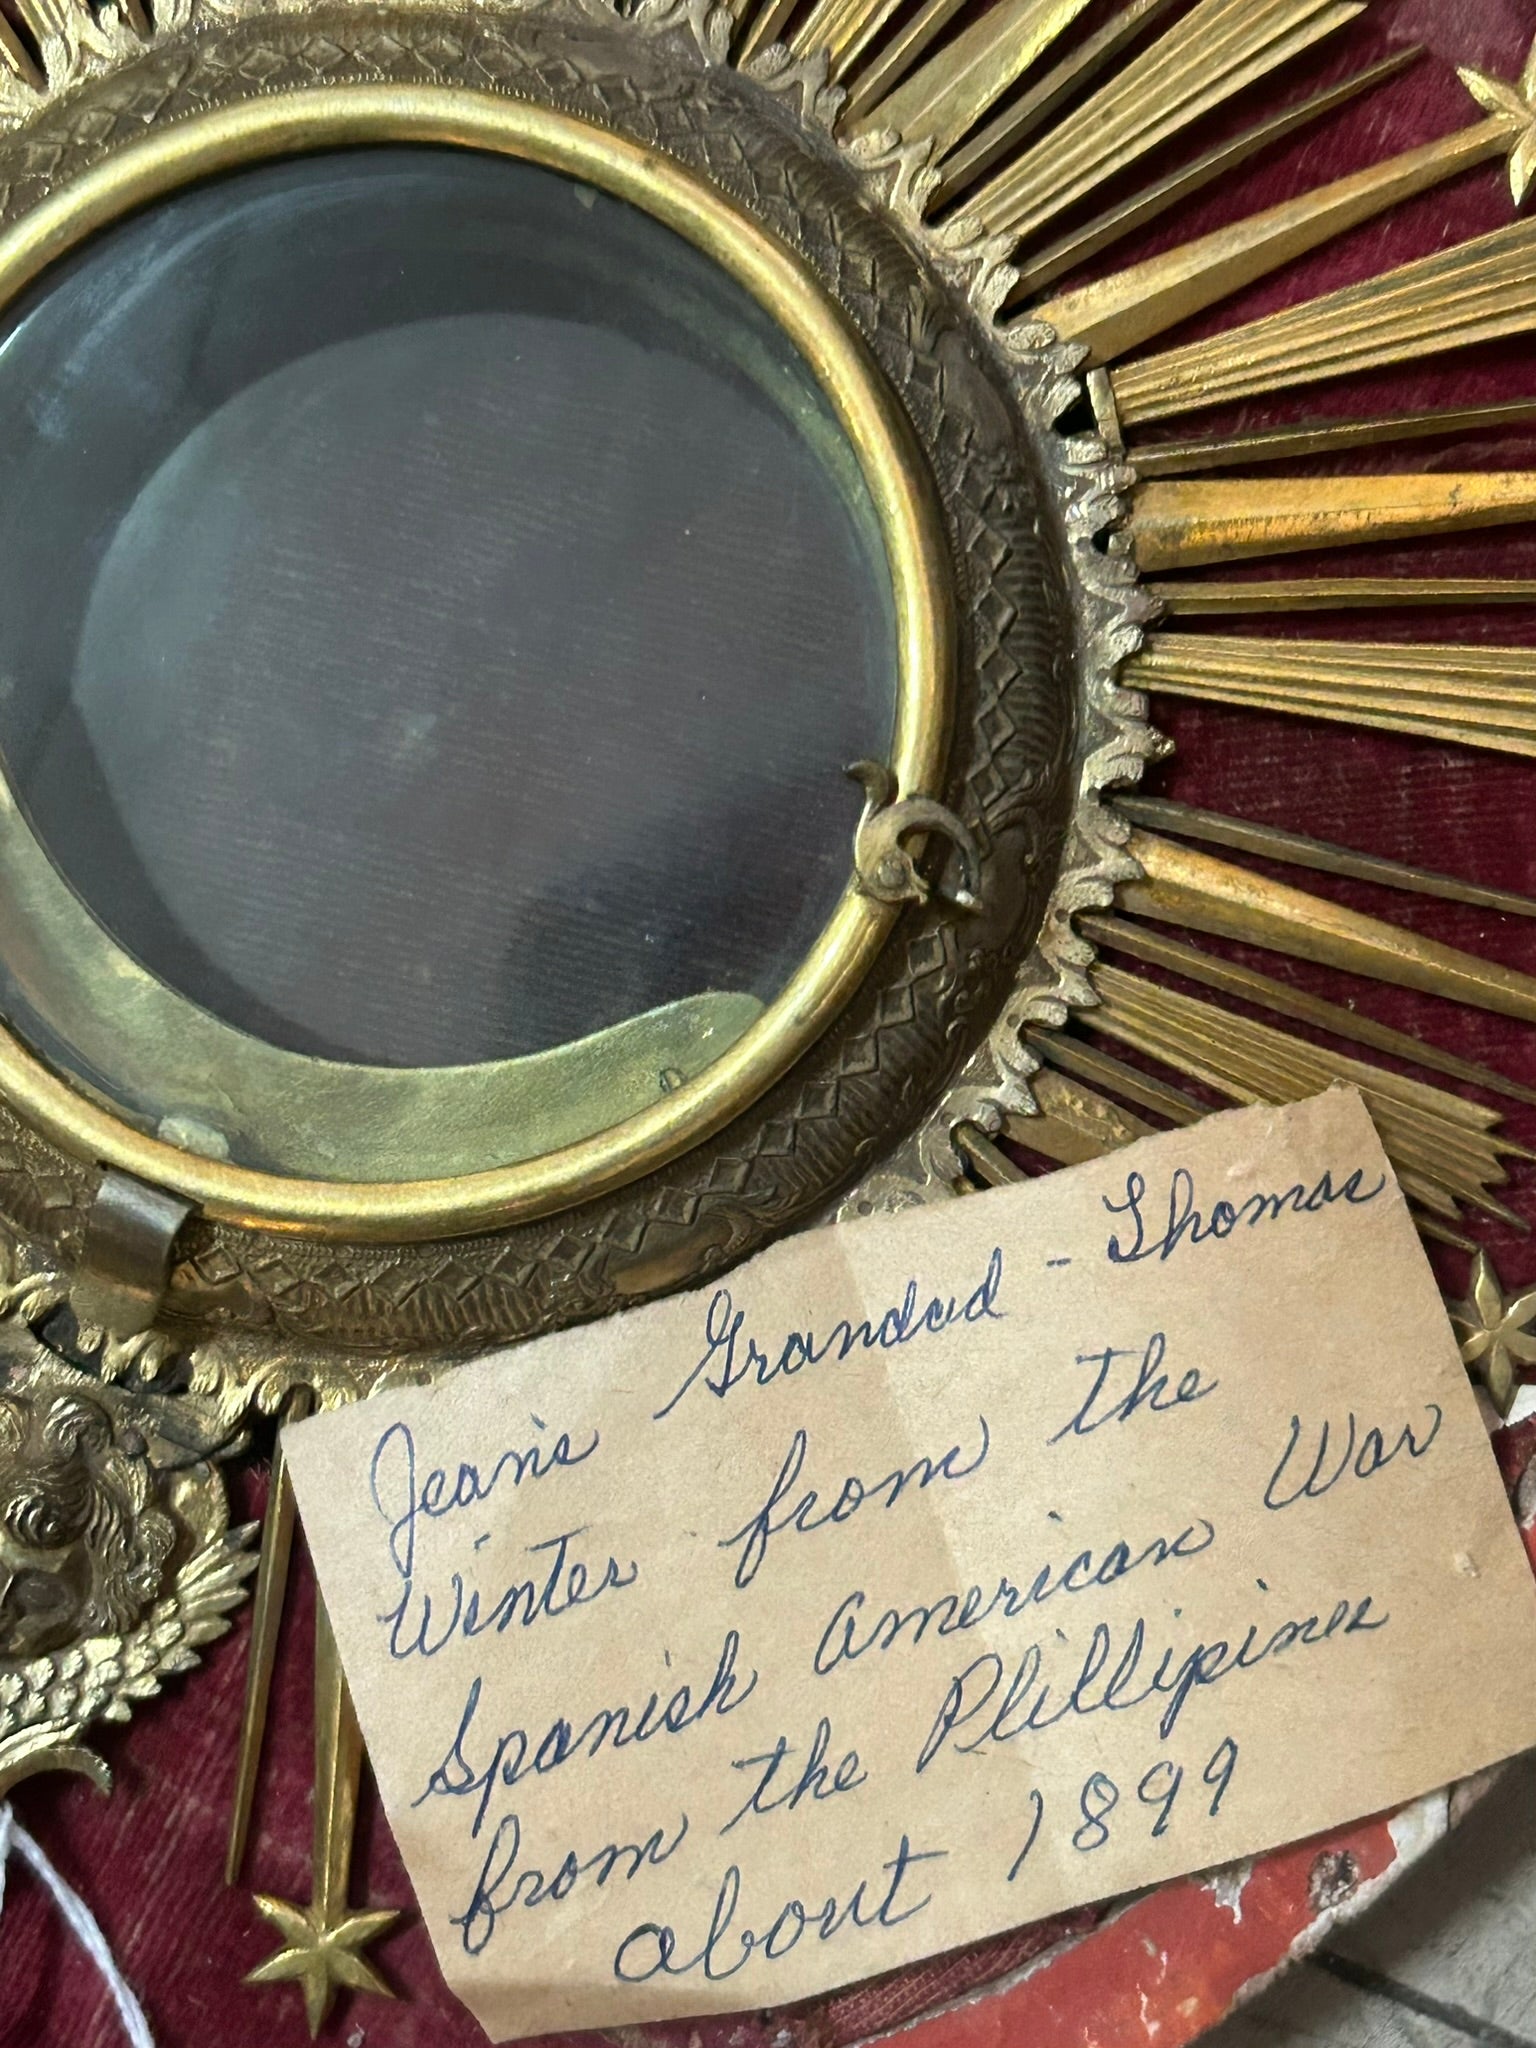 Jean's Grandad - Thomas
Winter from the
Spanish American War
from the Phillipines
about 1899